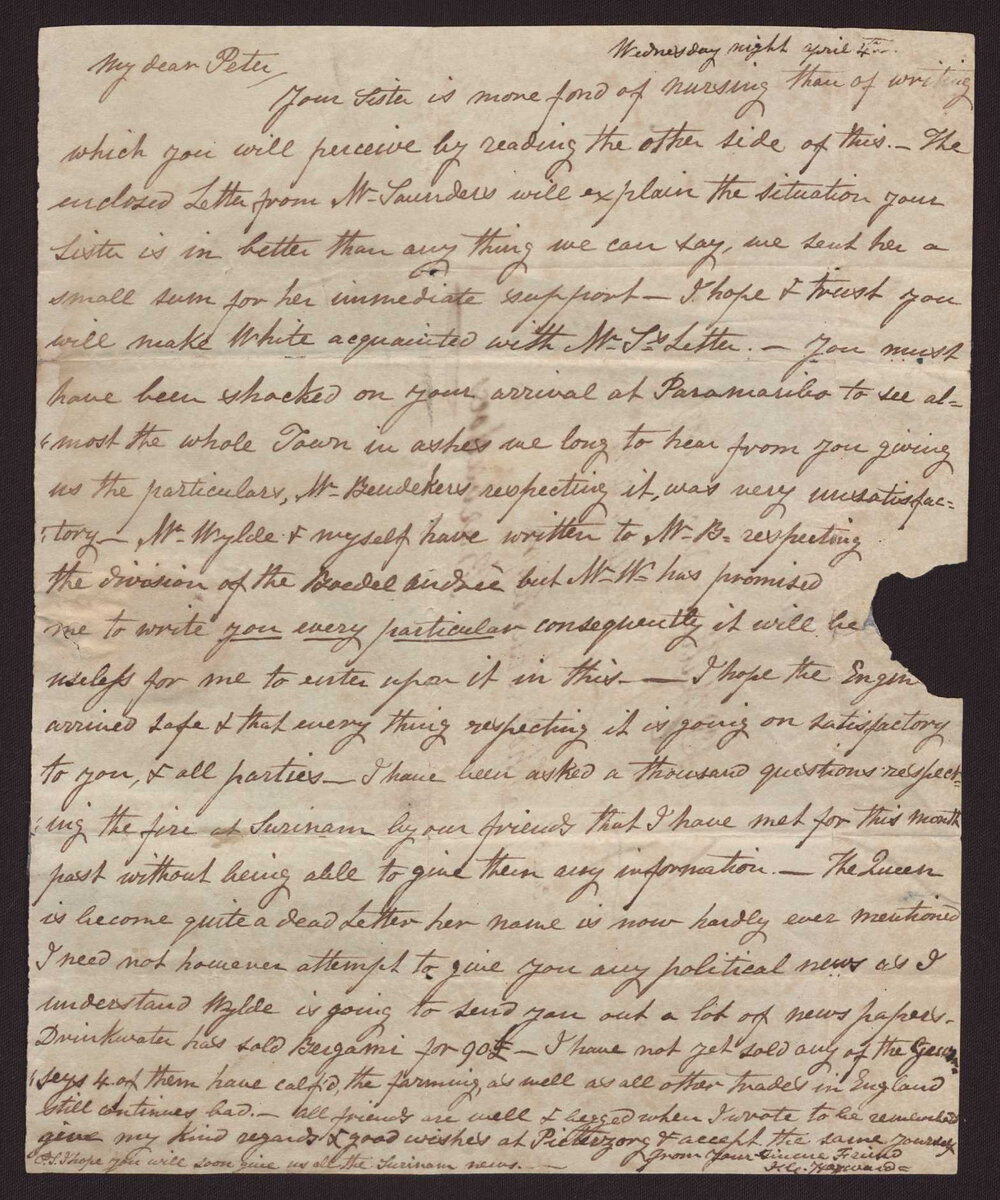 Wednesday night april 4th
My dear Peter,
Your Sister is more fond of nursing than of writing
which you will perceive by reading the other side of this. — The
enclosed Letter from Mr Saunders will explain the situation your
Sister is in better than any thing we can say, we sent her a
small sum for her immediate support — I hope & trust you
will make White acquainted with Mr S's Letter. — You must
have been shocked on your arrival at Paramaribo to see al=
"most the whole Town in ashes we long to hear from you giving
us the particulars, Mr Beudekers respecting it, was very unsatisfac=
"tory — Mr Wylde & myself have written to Mr B= respecting
the division of the Boedel andrée but Mr W= has promised
me to write you every particular consequently it will be
useless for me to enter upon it in this. — I hope the Engin
arrived safe & that every thing respecting it is going on satisfactory
to you, & all parties — I have been asked a thousand questions respect=
"ing the fire at Surinam by our friends that I have met for this month
past without being able to give them any information. — The Queen
is become quite a dead Letter her name is now hardly ever mentioned
I need not however attempt to give you any political news as I
understand Wylde is going to send you out a lot of news papers.
Drinkwater has sold Bergami for 90£ — I have not yet sold any of the Guern=
"seys 4 of them have calf'd, the farming, as well as all other trades in England
still continues bad. — all friends are well & begged when I wrote to be remembered
give my kind regards & good wishes at Pieterzorg & accept the same yourself
from your Sincere Friend
Hayward=
P.S. I hope you will soon give us all the Surinam news. —